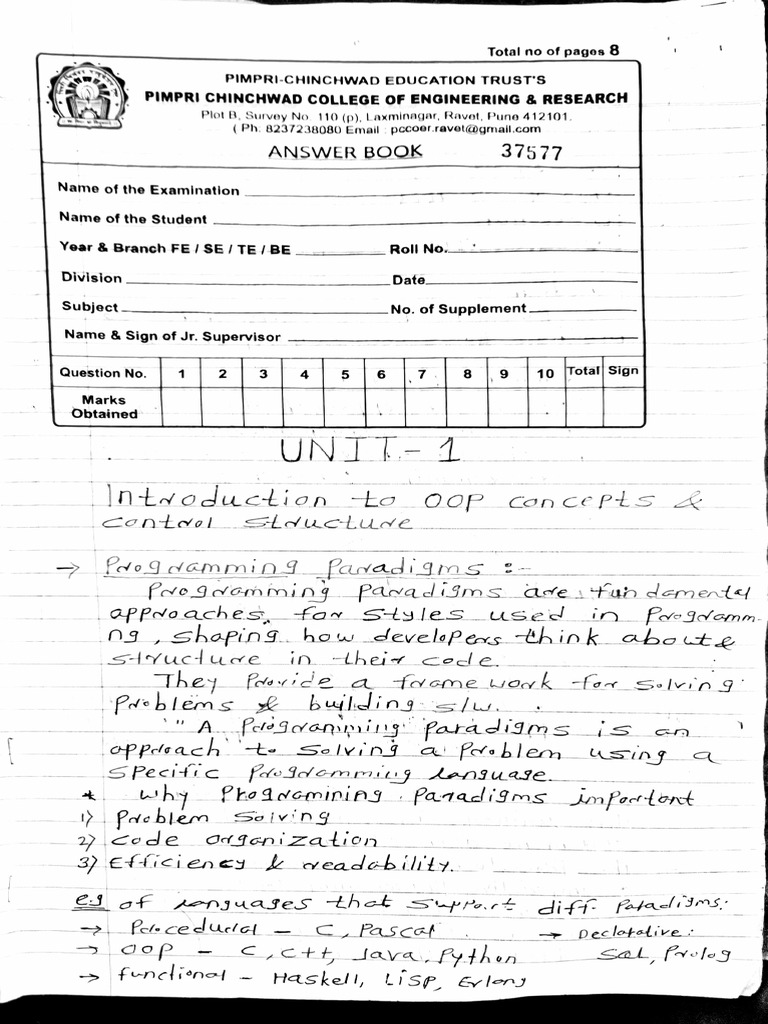 Total no of pages 8
PIMPRI-CHINCHWAD EDUCATION TRUST'S
PIMPRI CHINCHWAD COLLEGE OF ENGINEERING & RESEARCH
Plot B, Survey No. 110 (p), Laxminagar, Ravet, Pune 412101.
( Ph: 8237238080 Email : pccoer.ravet@gmail.com
ANSWER BOOK 37577
Name of the Examination
Name of the Student
Year & Branch FE / SE / TE / BE Roll No.
Division Date
Subject No. of Supplement
Name & Sign of Jr. Supervisor
Question No. 1 2 3 4 5 6 7 8 9 10 Total Sign
Marks
Obtained
UNIT-1
Introduction to OOP concepts &
control structure
→ Programming Paradigms :-
Programming Paradigms are fundamental
approaches, for styles used in Programm-
ng, shaping how developers think about &
structure in their code.
They Provide a framework for solving
Problems & building s/w.
" A Programming Paradigms is an
approach to solving a Problem using a
specific Programming language.
* Why Programining Paradigms important
1) Problem Solving
2) Code Organization
3) Efficiency & readability.
e.g of languages that support diff. Paradigms:
→ Procedural - C, Pascal → Declarative:
→ OOP - C, C++, Java, Python SQL, Prolog
→ functional - Haskell, LISP, Erlong